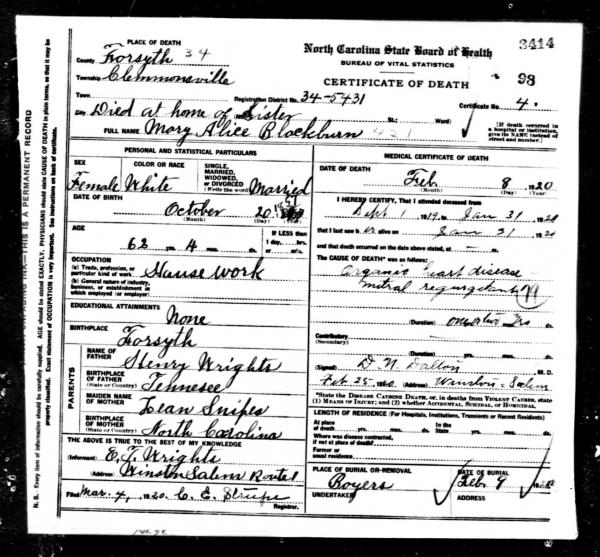 3414
PLACE OF DEATH
County Forsyth 34
Township Clemmonsville
Town
City Died at home of Sister
North Carolina State Board of Health
BUREAU OF VITAL STATISTICS
CERTIFICATE OF DEATH
98
Registration District No. 34-5431
Certificate No. 4.
St.; Ward)
[If death occurred in a hospital or institution, give its NAME instead of street and number.]
FULL NAME Mary Alice Blackburn 431
PERSONAL AND STATISTICAL PARTICULARS
SEX
Female
COLOR OR RACE
White
SINGLE, MARRIED, WIDOWED, or DIVORCED
(Write the word) Married
DATE OF BIRTH
October 20
(Month) (Day) (Year)
AGE
62 yrs. 4 mos. ds.
If LESS than
1 day, hrs.
or min.
OCCUPATION
(a) Trade, profession, or particular kind of work. House work
(b) General nature of industry, business, or establishment in which employed (or employer)
EDUCATIONAL ATTAINMENTS
None
BIRTHPLACE
Forsyth
PARENTS
NAME OF FATHER Henry Wrights
BIRTHPLACE OF FATHER
(State or Country) Tennesee
MAIDEN NAME OF MOTHER Lean Snipes
BIRTHPLACE OF MOTHER
(State or Country) North Carolina
THE ABOVE IS TRUE TO THE BEST OF MY KNOWLEDGE
(Informant) E. T. Wrights
(Address) Winston Salem Route 1
Filed Mar. 4, 1920. C. E.
Registrar.
MEDICAL CERTIFICATE OF DEATH
DATE OF DEATH
Feb. 8 1920
(Month) (Day) (Year)
I HEREBY CERTIFY, That I attended deceased from
Sept 1 1919, to Jan 31 1920
that I last saw h er alive on Jan 31 1920
and that death occurred on the date above stated, at — m.
The CAUSE OF DEATH* was as follows:
Organic heart disease
mitral regurgitation
(Duration) yrs. mos. ds.
Contributory
(Secondary)
(Duration) yrs. mos. ds.
(Signed) D. N. Dalton, M. D.
Feb. 25 1920 (Address) Winston-Salem
*State the DISEASE CAUSING DEATH, or, in deaths from VIOLENT CAUSES, state (1) MEANS OF INJURY; and (2) whether ACCIDENTAL, SUICIDAL, or HOMICIDAL.
LENGTH OF RESIDENCE (For Hospitals, Institutions, Transients or Recent Residents)
At place of death yrs. mos. ds. In the State yrs. mos. ds.
Where was disease contracted, if not at place of death?
Former or usual residence
PLACE OF BURIAL OR REMOVAL
Boyers
DATE OF BURIAL
Feb. 9 1920
UNDERTAKER
ADDRESS